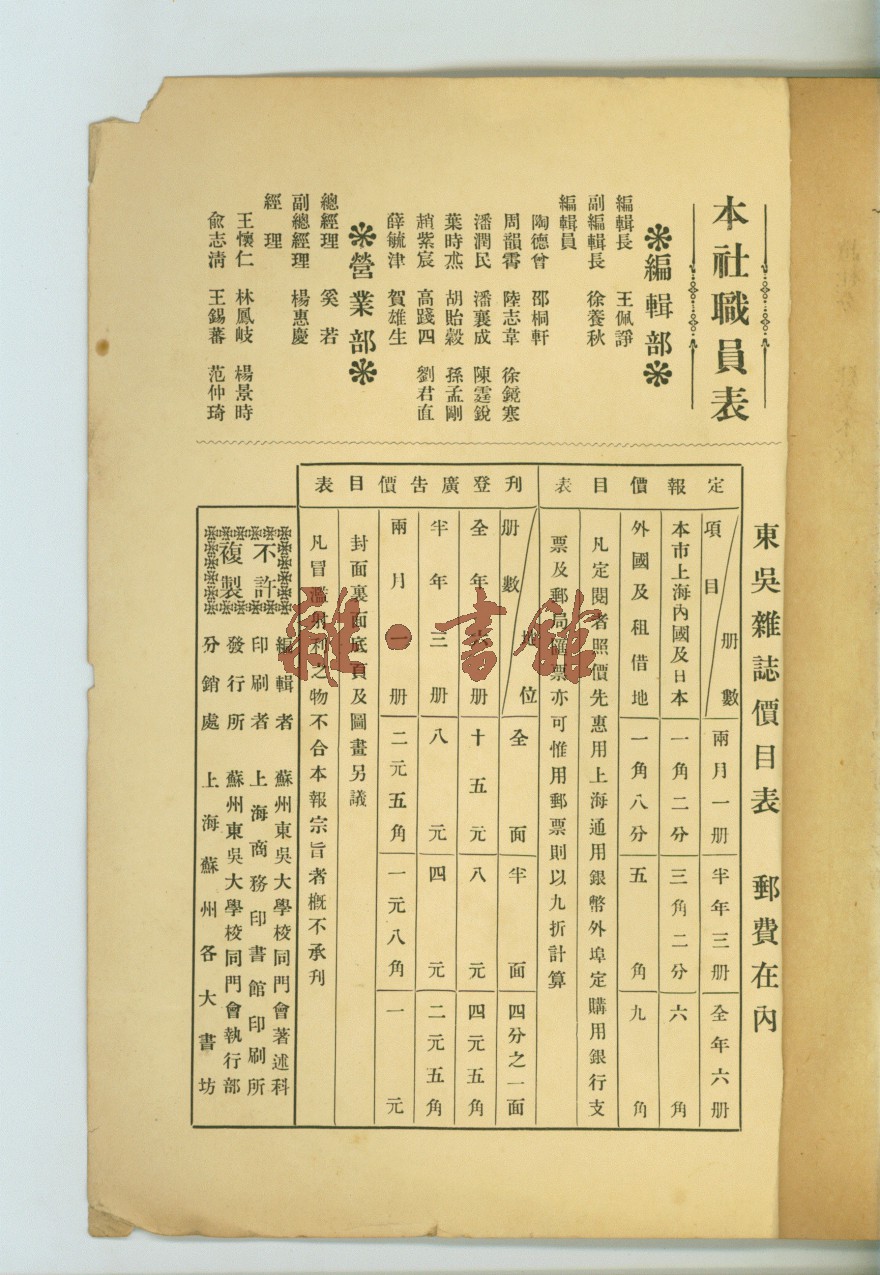 本社職員表
編輯部
編輯長 王佩諍
副編輯長 徐養秋
編輯員
陶德曾 邵桐軒
周韻霄 陸志韋 徐鏡寒
潘潤民 潘襄成 陳霆銳
葉時杰 胡貽穀 孫孟剛
趙紫宸 高踐四 劉君直
薛毓津 賀雄生
營業部
總經理 奚若
副總經理 楊惠慶
經理
王懷仁 林鳳岐 楊景時
俞志淸 王錫蕃 范仲琦
東吳雜誌價目表 郵費在內
定報價目表
項目 册數 兩月一册 半年三册 全年六册
本市上海內國及日本 一角二分 三角二分 六角
外國及租借地 一角八分 五角 九角
凡定閱者照價先惠用上海通用銀幣外埠定購用銀行支
票及郵局匯票亦可惟用郵票則以九折計算
刊登廣告價目表
册數 地位 全面 半面 四分之一面
全年六册 十五元 八元 四元五角
半年三册 八元 四元 二元五角
兩月一册 二元五角 一元八角 一元
封面裏面底頁及圖畫另議
凡冒濫射利之物不合本報宗旨者槪不承刋
不許
複製
編輯者 蘇州東吳大學校同門會著述科
印刷者 上海商務印書館印刷所
發行所 蘇州東吳大學校同門會執行部
分銷處 上海蘇州各大書坊
雜·書館